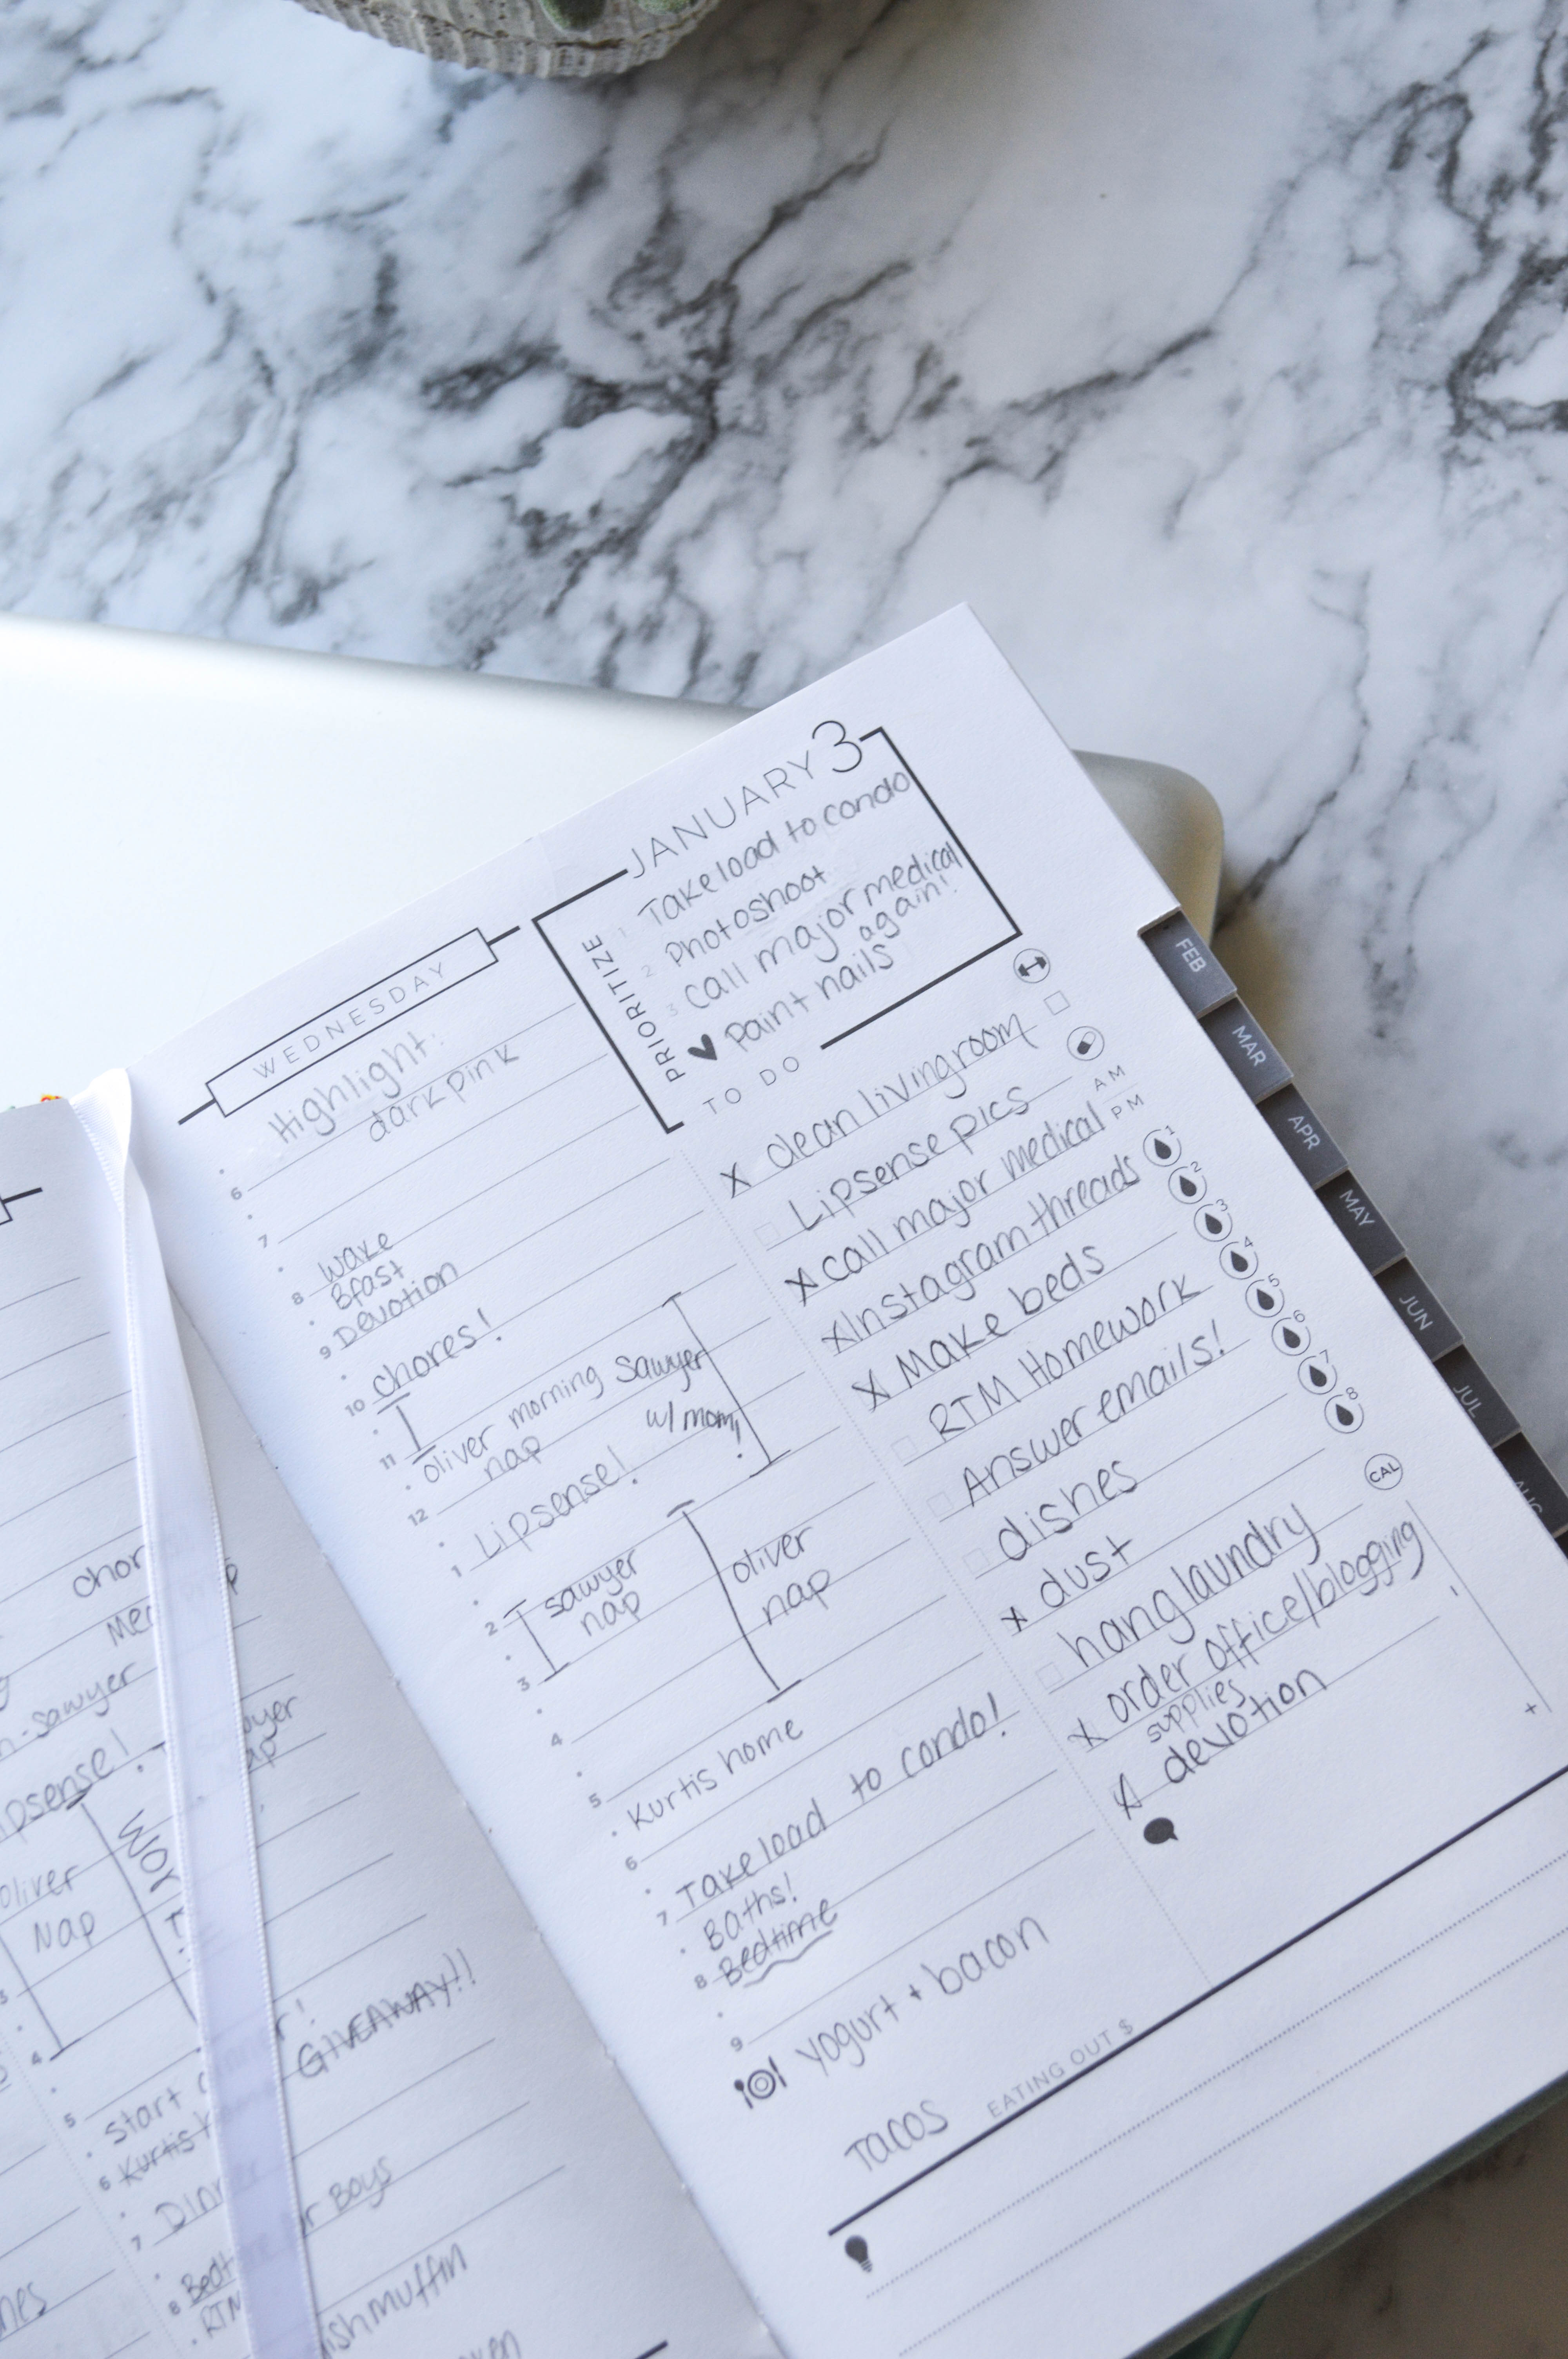 WEDNESDAY
JANUARY 3
PRIORITIZE
1 Take load to condo
2 Photoshoot
3 call major medical
again!
Paint nails
Highlight:
dark pink
6
7
wake
8 Bfast
9 Devotion
10 chores!
11
oliver morning Sawyer
nap w/ mom!
12
Lipsense!
1
sawyer oliver
2 nap nap
3
4
5
Kurtis home
6
Take load to condo!
7 Baths!
8 Bedtime
9
yogurt + bacon
Tacos
EATING OUT $
TO DO
X clean livingroom
Lipsense pics
X call major medical
X Instagram threads
X Make beds
RTM Homework
Answer emails!
dishes
X dust
hang laundry
X order office/blogging
supplies
X devotion
AM
PM
1
2
3
4
5
6
7
8
CAL
-
+
FEB
MAR
APR
MAY
JUN
JUL
AUG
chor
-sawyer
ipsense!
oliver
Nap
3
4
GIVEAWAY!!
5
start
6 Kurtis
7
Boys
8
RTM